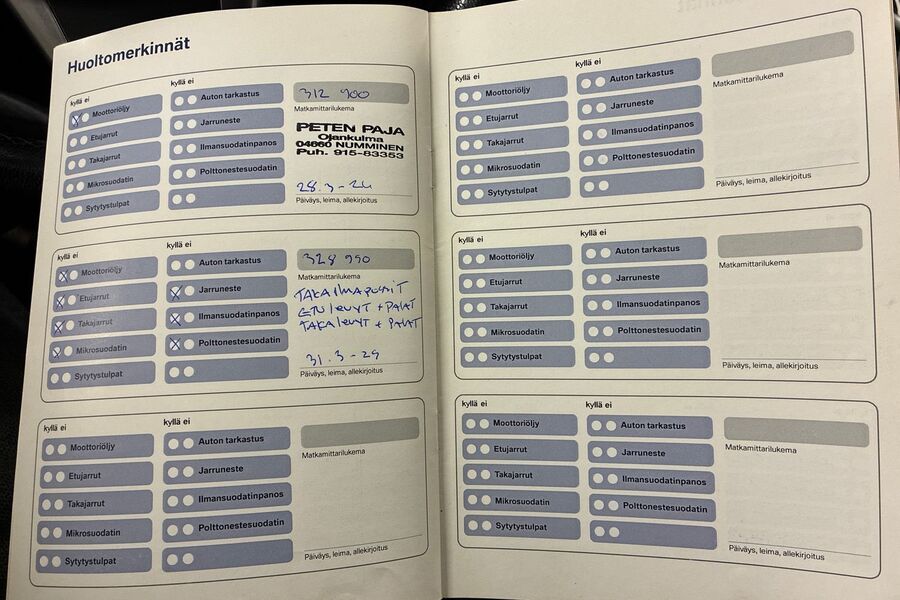 Huoltomerkinnät
kyllä ei
Moottoriöljy
Etujarrut
Takajarrut
Mikrosuodatin
Sytytystulpat
kyllä ei
Auton tarkastus
Jarruneste
Ilmansuodatinpanos
Polttonestesuodatin
312 900
Matkamittarilukema
PETEN PAJA
Ojankulma
04660 NUMMINEN
Puh. 915-83353
28.3-24
Päiväys, leima, allekirjoitus
kyllä ei
Moottoriöljy
Etujarrut
Takajarrut
Mikrosuodatin
Sytytystulpat
kyllä ei
Auton tarkastus
Jarruneste
Ilmansuodatinpanos
Polttonestesuodatin
328 990
Matkamittarilukema
TAKAILMAPUSSIT
ETULEVYT + PALAT
TAKALEVYT + PALAT
31.3-25
Päiväys, leima, allekirjoitus
kyllä ei
Moottoriöljy
Etujarrut
Takajarrut
Mikrosuodatin
Sytytystulpat
kyllä ei
Auton tarkastus
Jarruneste
Ilmansuodatinpanos
Polttonestesuodatin
Matkamittarilukema
Päiväys, leima, allekirjoitus
kyllä ei
Moottoriöljy
Etujarrut
Takajarrut
Mikrosuodatin
Sytytystulpat
kyllä ei
Auton tarkastus
Jarruneste
Ilmansuodatinpanos
Polttonestesuodatin
Matkamittarilukema
Päiväys, leima, allekirjoitus
kyllä ei
Moottoriöljy
Etujarrut
Takajarrut
Mikrosuodatin
Sytytystulpat
kyllä ei
Auton tarkastus
Jarruneste
Ilmansuodatinpanos
Polttonestesuodatin
Matkamittarilukema
Päiväys, leima, allekirjoitus
kyllä ei
Moottoriöljy
Etujarrut
Takajarrut
Mikrosuodatin
Sytytystulpat
kyllä ei
Auton tarkastus
Jarruneste
Ilmansuodatinpanos
Polttonestesuodatin
Matkamittarilukema
Päiväys, leima, allekirjoitus